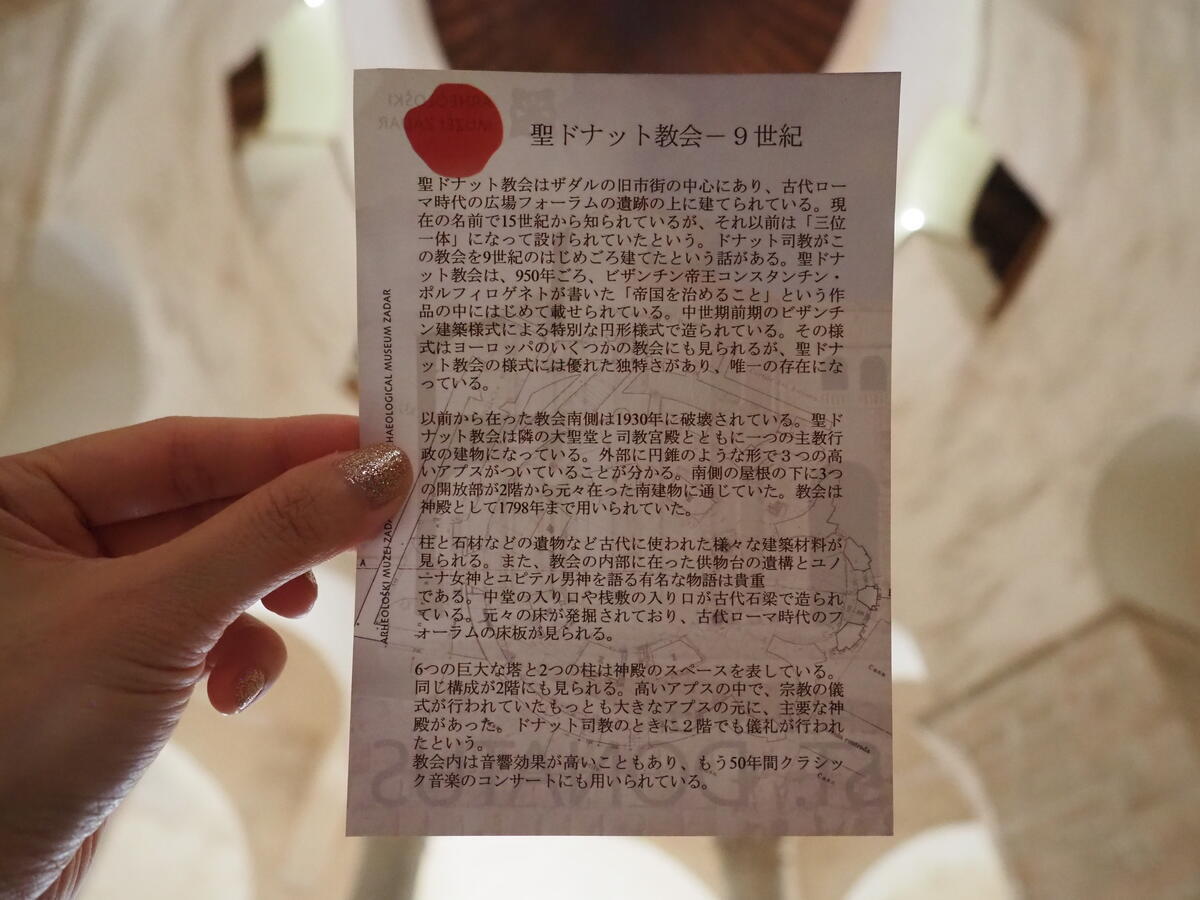 聖ドナット教会－９世紀
聖ドナット教会はザダルの旧市街の中心にあり、古代ロー
マ時代の広場フォーラムの遺跡の上に建てられている。現
在の名前で15世紀から知られているが、それ以前は「三位
一体」になって設けられていたという。ドナット司教がこ
の教会を9世紀のはじめごろ建てたという話がある。聖ドナ
ット教会は、950年ごろ、ビザンチン帝王コンスタンチン・
ポルフィロゲネトが書いた「帝国を治めること」という作
品の中にはじめて載せられている。中世期前期のビザンチ
ン建築様式による特別な円形様式で造られている。その様
式はヨーロッパのいくつかの教会にも見られるが、聖ドナ
ット教会の様式には優れた独特さがあり、唯一の存在にな
っている。
以前から在った教会南側は1930年に破壊されている。聖ド
ナット教会は隣の大聖堂と司教宮殿とともに一つの主教行
政の建物になっている。外部に円錐のような形で３つの高
いアプスがついていることが分かる。南側の屋根の下に3つ
の開放部が2階から元々在った南建物に通じていた。教会は
神殿として1798年まで用いられていた。
柱と石材などの遺物など古代に使われた様々な建築材料が
見られる。また、教会の内部に在った供物台の遺構とユノ
ーナ女神とユピテル男神を語る有名な物語は貴重
である。中堂の入り口や桟敷の入り口が古代石梁で造られ
ている。元々の床が発掘されており、古代ローマ時代のフ
ォーラムの床板が見られる。
6つの巨大な塔と2つの柱は神殿のスペースを表している。
同じ構成が2階にも見られる。高いアプスの中で、宗教の儀
式が行われていたもっとも大きなアプスの元に、主要な神
殿があった。ドナット司教のときに２階でも儀礼が行われ
たという。
教会内は音響効果が高いこともあり、もう50年間クラシッ
ク音楽のコンサートにも用いられている。
ARHEOLOŠKI MUZEJ ZADAR
ARCHAEOLOGICAL MUSEUM ZADAR
ARHEOLOŠKI
MUZEJ ZADAR
ST. DONATUS